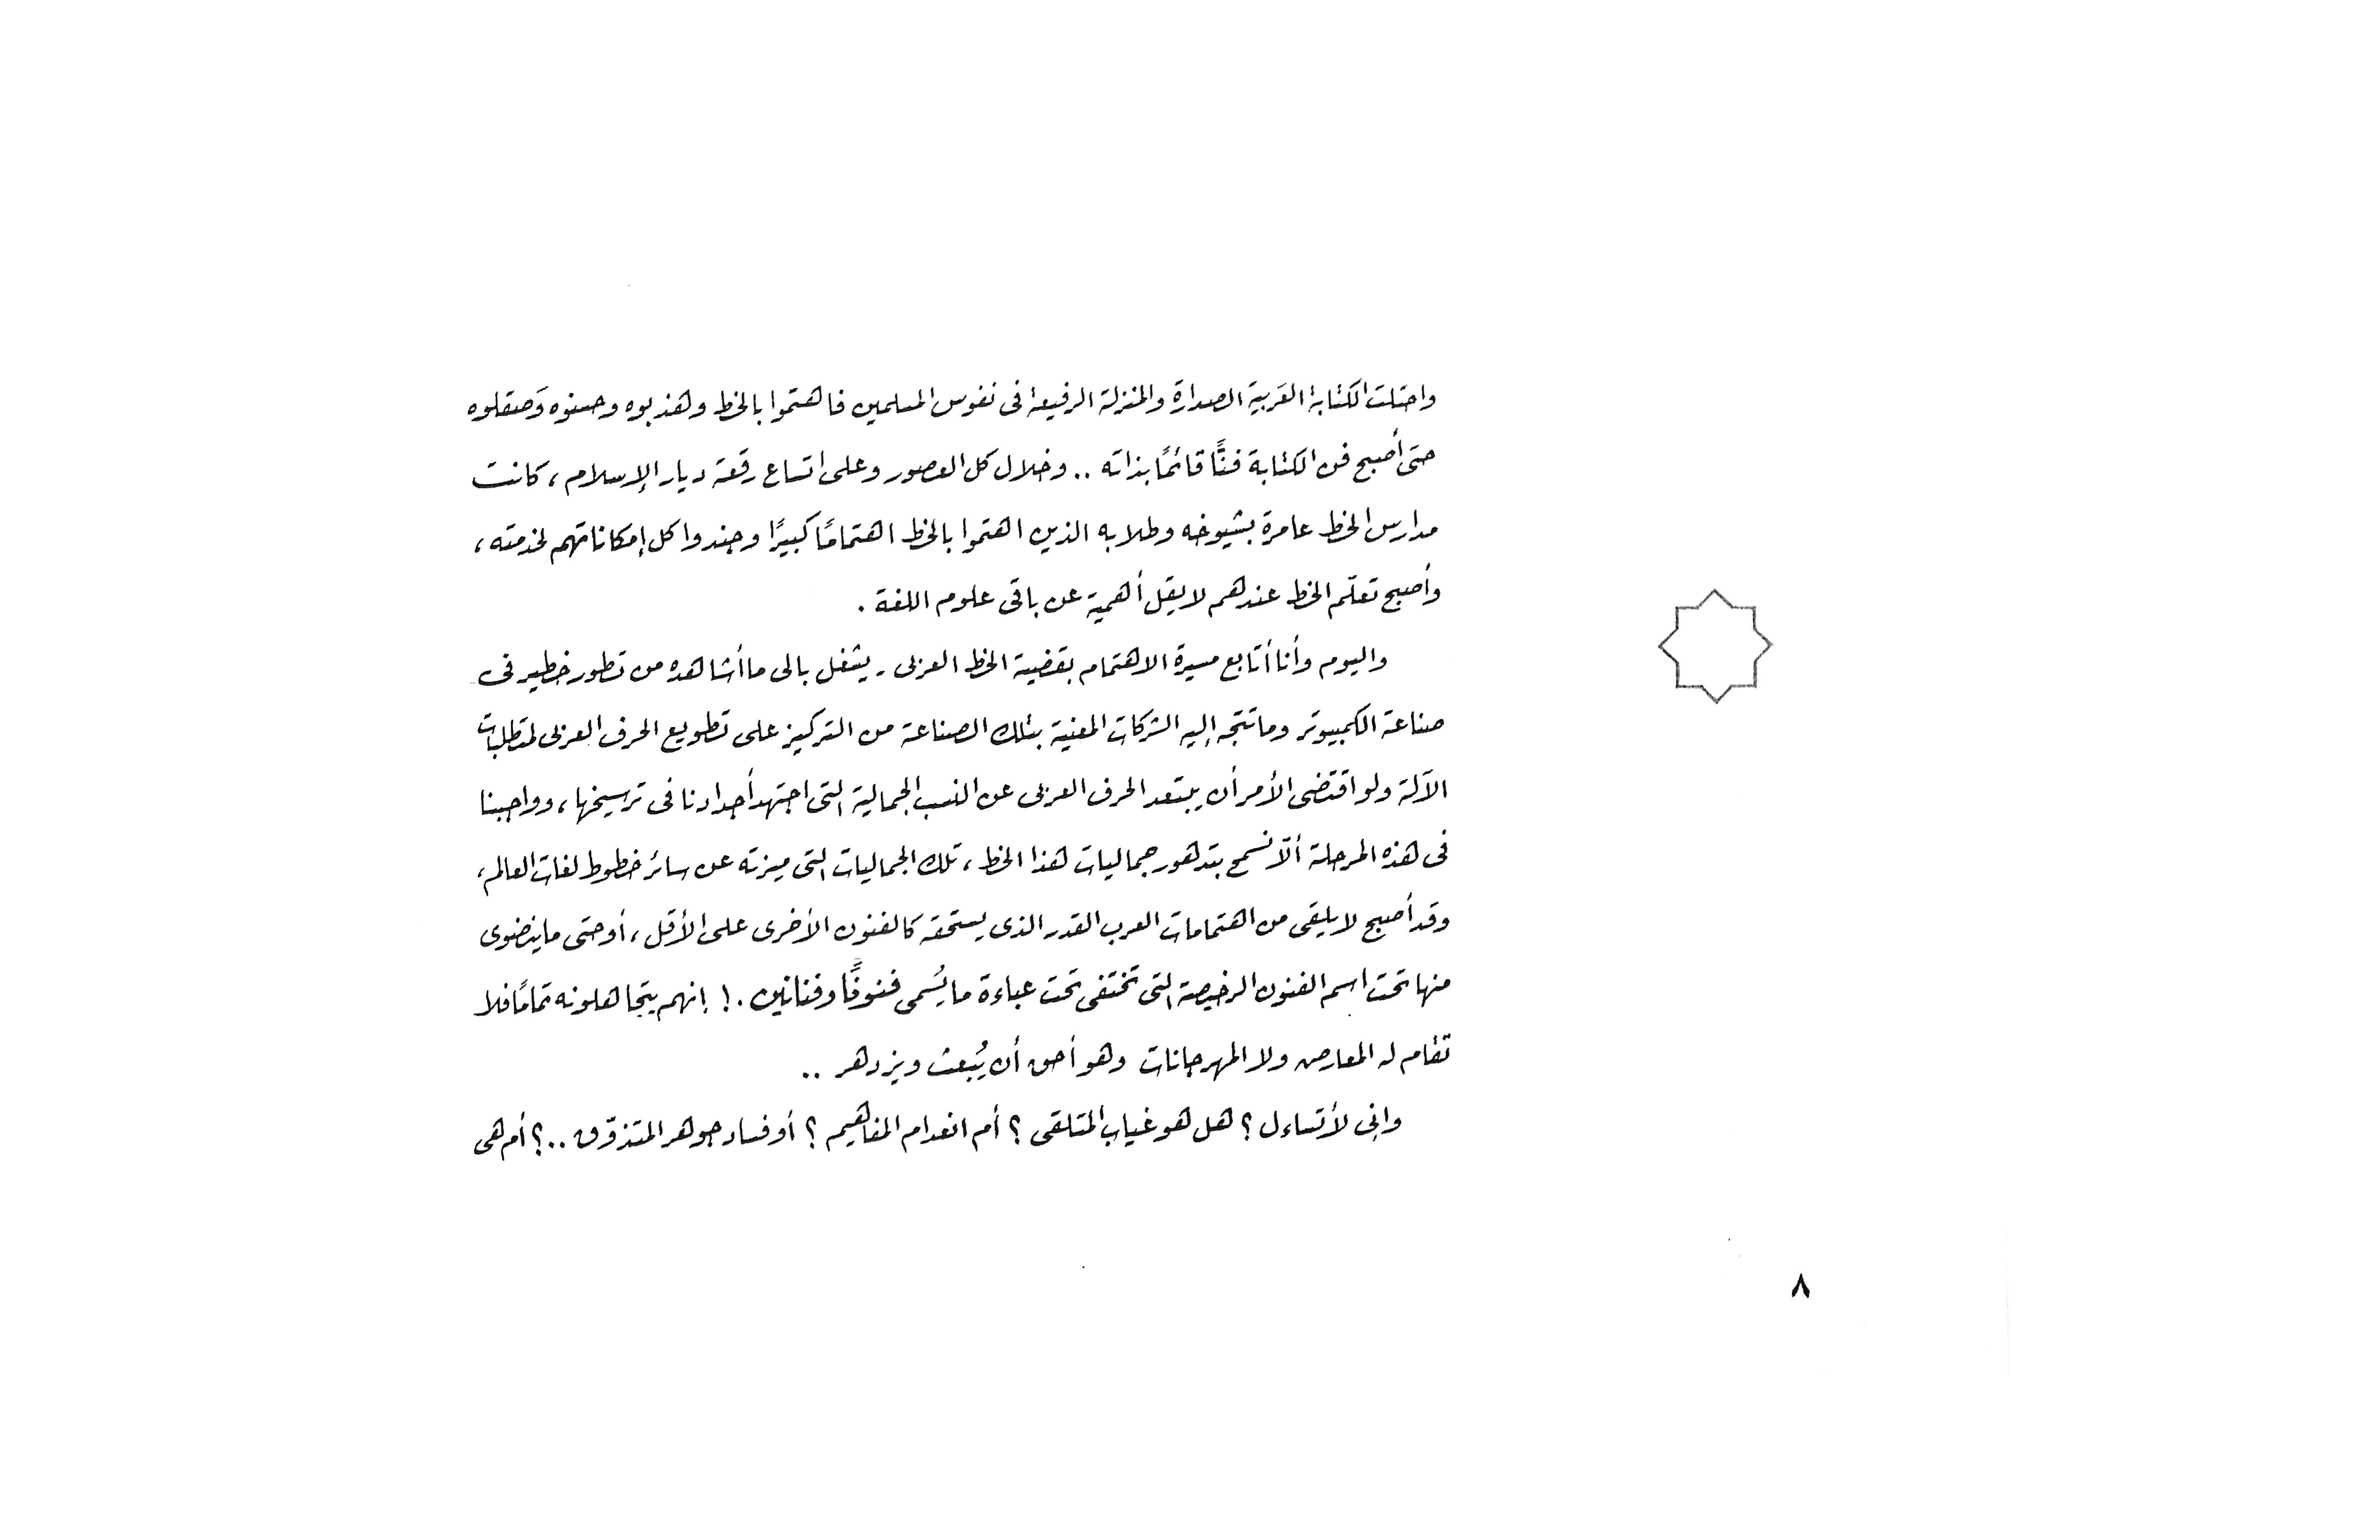 واحتلت الكتابة العَربية الصدارة والمنزلة الرفيعة فى نفوس المسلمين فاهتموا بالخط وهذبوه وحسنوه وَصقلوه
حتى أصبح فن الكتابة فنًّا قائمًا بذاته .. وخلال كل العصور وعلى اتساع رقعة ديار الإسلام ، كانت
مدارس الخط عامرة بشيوخه وطلابه الذين اهتموا بالخط اهتمامًا كبيرًا وجندوا كل إمكاناتهم لخدمته ،
وأصبح تعلّم الخط عندهم لا يقل أهمية عن باقى علوم اللغة .
واليوم وأنا أتابع مسيرة الاهتمام بقضية الخط العربى - يشغل بالى ما أشاهده من تطور خطير فى
صناعة الكمبيوتر وما تتجه إليه الشركات المعنية بتلك الصناعة من التركيز على تطويع الحرف العربى لمتطلبات
الآلة ولو اقتضى الأمر أن يبتعد الحرف العربى عن النسب الجمالية التى اجتهد أجدادنا فى ترسيخها ، وواجبنا
فى هذه المرحلة ألّا نسمح بتدهور جماليات هذا الخط ، تلك الجماليات التى ميزته عن سائر خطوط لغات العالم ،
وقد أصبح لا يلقى من اهتمامات العرب القدر الذى يستحقه كالفنون الأخرى على الأقل ، أو حتى ما ينضوى
منها تحت اسم الفنون الرخيصة التى تختفى تحت عباءة ما يُسمى فنونًا وفنانين .! إنهم يتجاهلونه تمامًا فلا
تقام له المعارض ولا المهرجانات وهو أحق أن يُبعث ويزدهر ..
وإنى لأتساءل ؟ هل هو غياب المتلقى ؟ أم انعدام المفاهيم ؟ أو فساد جوهر المتذوّق ..؟ أم هى
٨